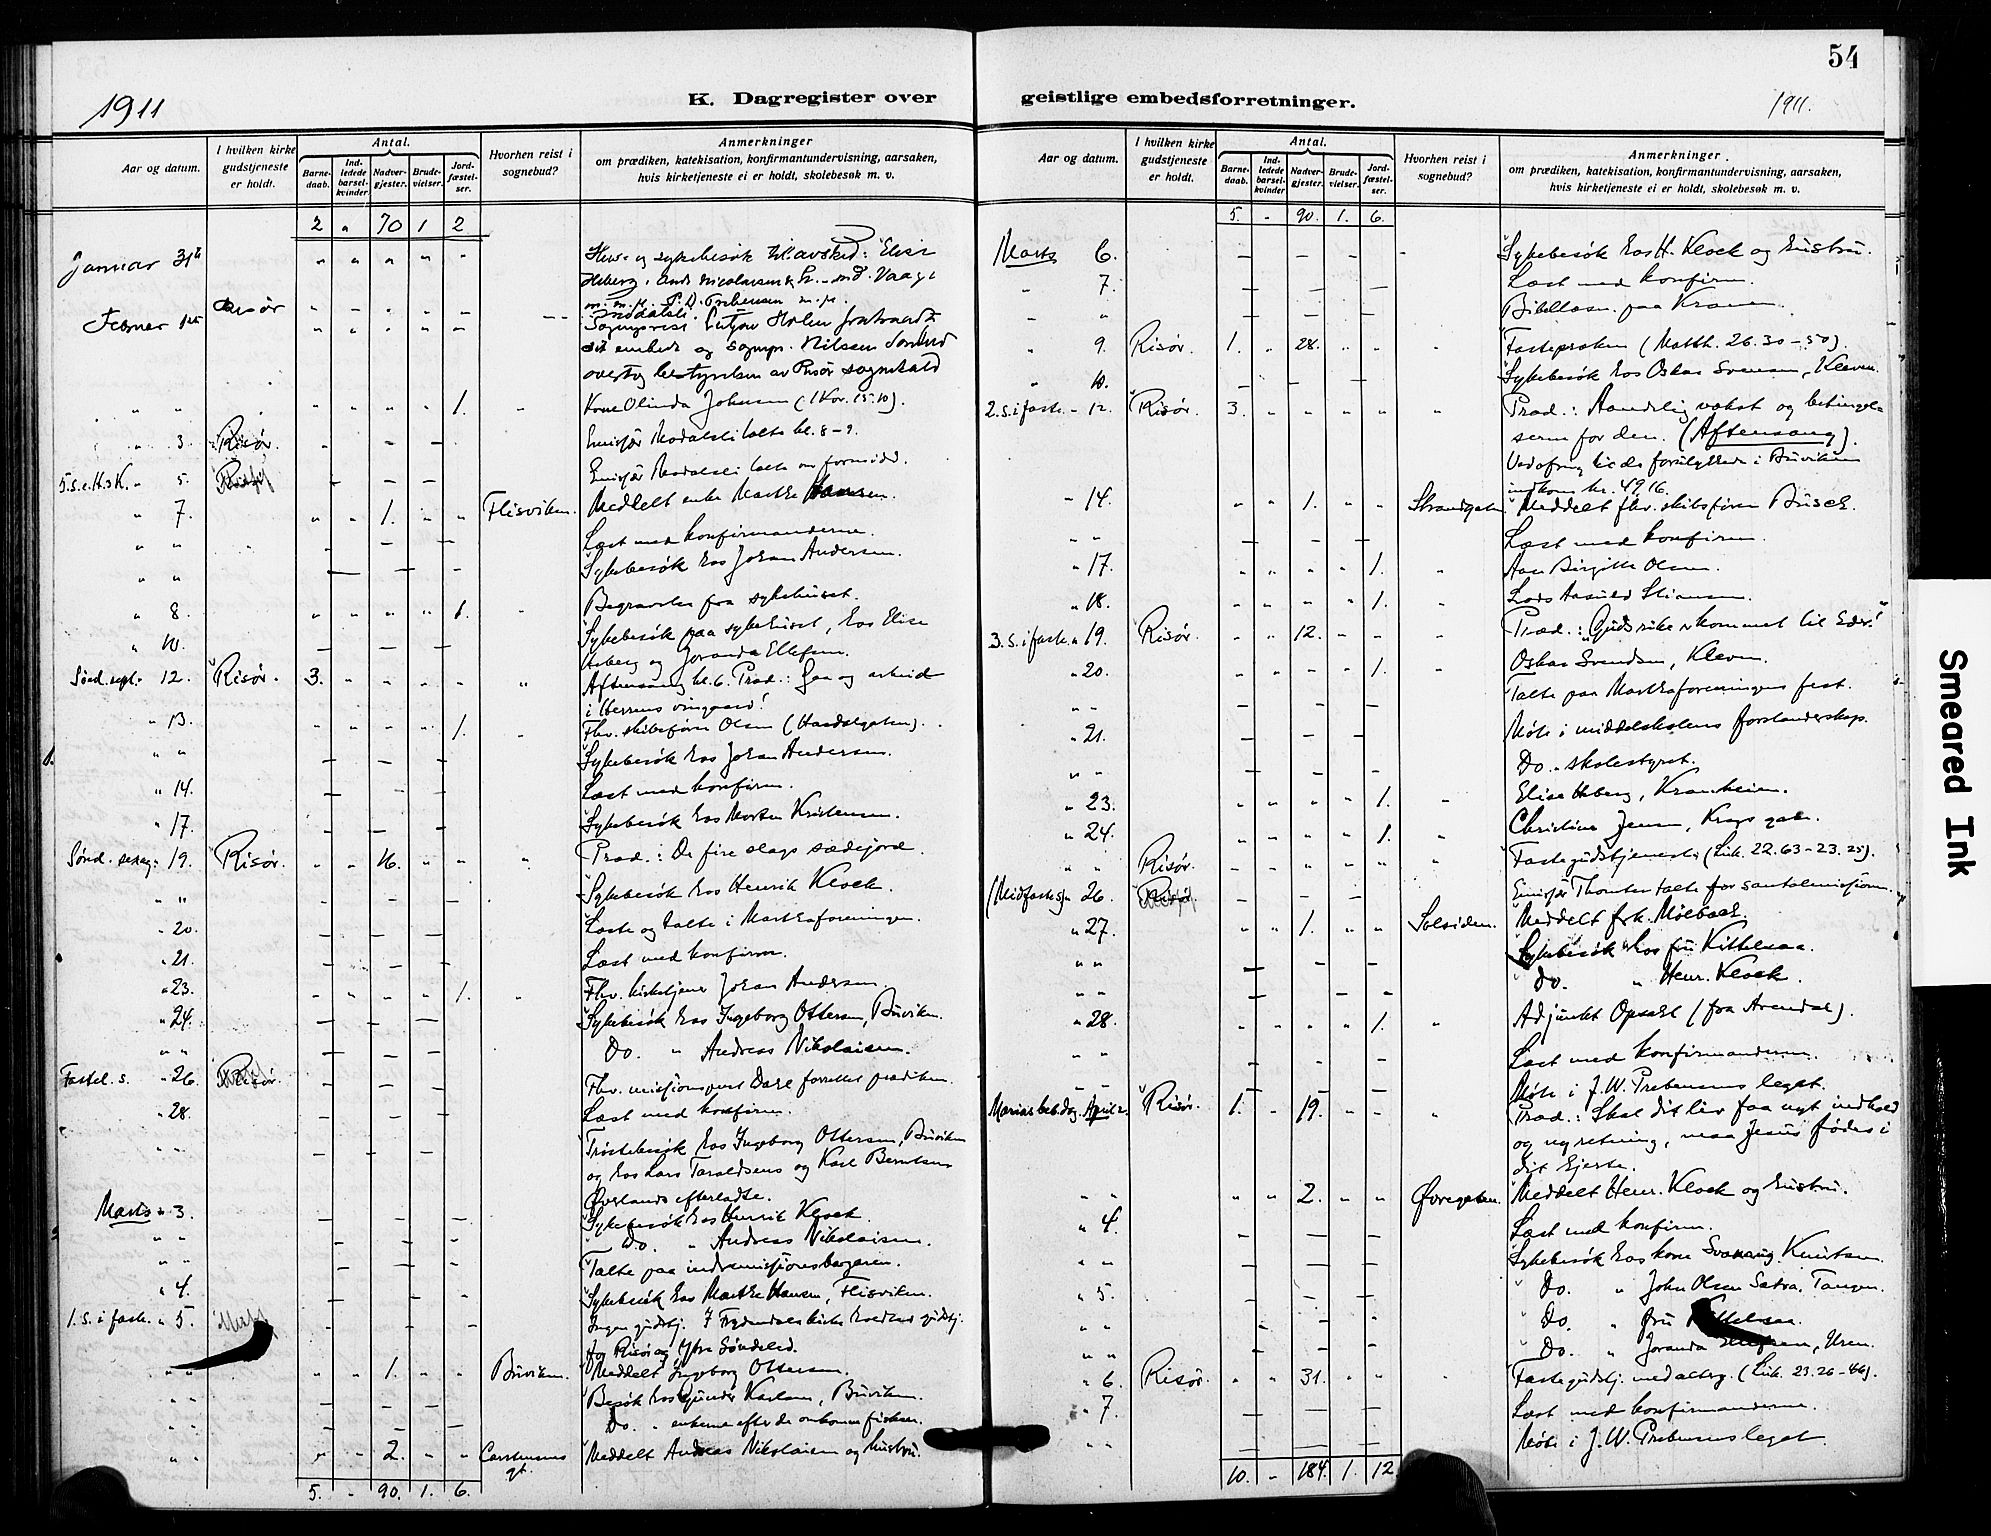 54
1911
K. Dagregister over geistlige embedsforretninger.
1911.
Aar og datum.
I hvilken kirke gudstjeneste er holdt.
Antal.
Barnedaab.
Indledede barselkvinder
Nadvergjester.
Brudevielser.
Jordfæstelser.
Hvorhen reist i sognebud?
Anmerkninger
om prædiken, katekisation, konfirmantundervisning, aarsaken,
hvis kirketjeneste ei er holdt, skolebesøk m. v.
2 " 70 1 2
Januar 31te " " " " " Hus- og sykebesøk til avsked: Elise
Februar 1ste Risør
set embede og sogmpr. Nilsen Søndeled
overtog bestyrelsen av Risør sognekald
" " " " " " 1. " Kone Olinda Johnsen (1 Kor. 15.10).
" 3. Risør. Emisær Modalsli talte kl. 8-9.
5.s.e.H.3K. " 5. Emisær Modalsli talte om formidd.
" 7. " " 1. " " Flisviken. Meddelt enke Marthe Hansen.
" " Læst med konfirmanderne.
" " Sykebesøk hos Johan Andersen.
" 8. " " " " 1. " Begravelse fra sykehuset.
" 10. Sykebesøk paa sykehuset, hos Elise
Heberg og Joranda Ellefsen.
Sønd. sept. " 12. Risør. 3. " " " " " Aftensang kl. 6. Præd.: Gaa og arbeid
i Herrens vingaard!
" 13. " " " " 1. " Fhv. skibsfører Olsen (Haadalgaten).
" " Sykebesøk hos Johan Andersen.
" 14. Læst med konfirm.
" 17. Sykebesøk hos Morten Kristensen.
Sønd. sexag. " 19. Risør. " " 16. " " " Præd.: De fire slags sædejord.
" " Sykebesøk hos Henrik Klock.
" 20. Læste og talte i Marthaforeningen.
" 21. Læst med konfirm.
" 23. " " " " 1. " Fhv. kirketjener Johan Andersen.
" 24. Sykebesøk hos Ingeborg Ottersen, Buviken.
" " Do. " Andreas Nikolaisen.
Fastel. s. " 26. Risør. Fhv. misjonsprest Dahl forrettet prædiken.
" 28. Læst med konfirm.
" " Trøstebesøk hos Ingeborg Ottersen, Buviken
og hos Lars Taraldsens og Karl Berntsen
Øverlands efterladte.
Marts " 3. Sykebesøk hos Henrik Klock.
" " Do. " Andreas Nikolaisen.
" " Talte paa indremisjonsbasaren.
" 4. Sykebesøk hos Marthe Hansen, Flisviken.
1.s.i faste. " 5. Ingen gudstj. I Frydendals kirke holdtes gudstj.
for Risør og Ytre Søndeled.
" " " " 1. " " Buviken. Meddelt Ingeborg Ottersen.
" " Besøk hos Gunder Karlsen, Buviken.
" " Do. " enkerne efter de omkomne fiskere.
" " " " 2. " " Carstensens gt. Meddelt Andreas Nikolaisen og hustru.
5. " 90. 1. 6.
Aar og datum.
I hvilken kirke gudstjeneste er holdt.
Antal.
Barnedaab.
Indledede barselkvinder
Nadvergjester.
Brudevielser.
Jordfæstelser.
Hvorhen reist i sognebud?
Anmerkninger.
om prædiken, katekisation, konfirmantundervisning, aarsaken,
hvis kirketjeneste ei er holdt, skolebesøk m. v.
5. " 90. 1. 6.
Marts 6. Sykebesøk hos H. Klock og hustru.
" 7. Læst med konfirm.
" " Bibellæsn. paa Kranen.
" 9. Risør. 1. " 28. " " " Fastepræken (Matth. 26.30-50).
" 10. Sykebesøk hos Oskar Svensen, Kleven.
2.s.i faste. " 12. Risør. 3. " " " " " Præd.: Aandelig vekst og betingelserne for den. (Aftensang).
Ved ofring til de forulykkede i Buviken
indkom kr. 49,16.
" 14. " " 1. " " Strandgaten. Meddelt fhv. skibsfører Busch.
" " Læst med konfirm.
" 17. " " " " 1. " Ane Birgitte Olsen.
" 18. " " " " 1. Lods Aasuld Stiansen.
3.s.i faste. " 19. Risør. " " 12. " " " Præd.: "Guds rike er kommet til Eder!"
" 20. " " " " 1. " Oskar Svendsen, Kleven.
" " Talte paa Marthaforeningens fest.
" 21. Møte i middelskolens forstanderskap.
" " Do. " skolestyret.
" 23. " " " " 1. " Elise Heberg, Kranheien.
" 24. " " " " 1. " Christine Jensen, Krags gate.
" " Risør. " " " " " " Fastegudstjeneste (Luk. 22.63-23.25).
(Midfastes) " 26. Risør. Emisær Thomter talte for santalmisjonen.
" 27. " " 1. " " Solsiden. Meddelt frk. Mølbach.
" " Sykebesøk hos fru Kittelsaa.
" " Do. " Henr. Klock.
" 28. " " " " 1. " Adjunkt Opsahl (fra Arendal).
" " Læst med konfirmanderne.
" " Møte i J. W. Prebensens legat.
Mariæ beb.dag. April 2. Risør. 1. " 19. " " " Præd.: Skal dit liv faa nyt indhold
og ny retning, maa Jesus fødes i
dit hjerte.
" " " " 2. " " Øvregaten. Meddelt Henr. Klock og hustru.
" 4. Læst med konfirm.
" " Sykebesøk hos kone Svanaug Knutsen.
" 5. Do. " John Olsen Sætra, Tangen.
" " Do. " fru Kittelsaa.
" " Do. " Joranda Ellefsen, Uren.
" 6. Risør. " " 31. " " " Fastegudstj. med alterg. (Luk. 23.26-46).
" 7. Læst med konfirmanderne.
" " Møte i J. W. Prebensens legat.
10. " 184. 1. 12
Smeared Ink